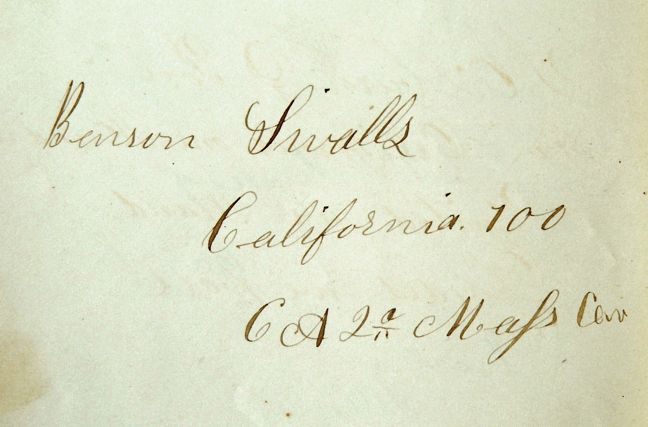 Benson Swalls
California. 100
C A 2d Mass Cav